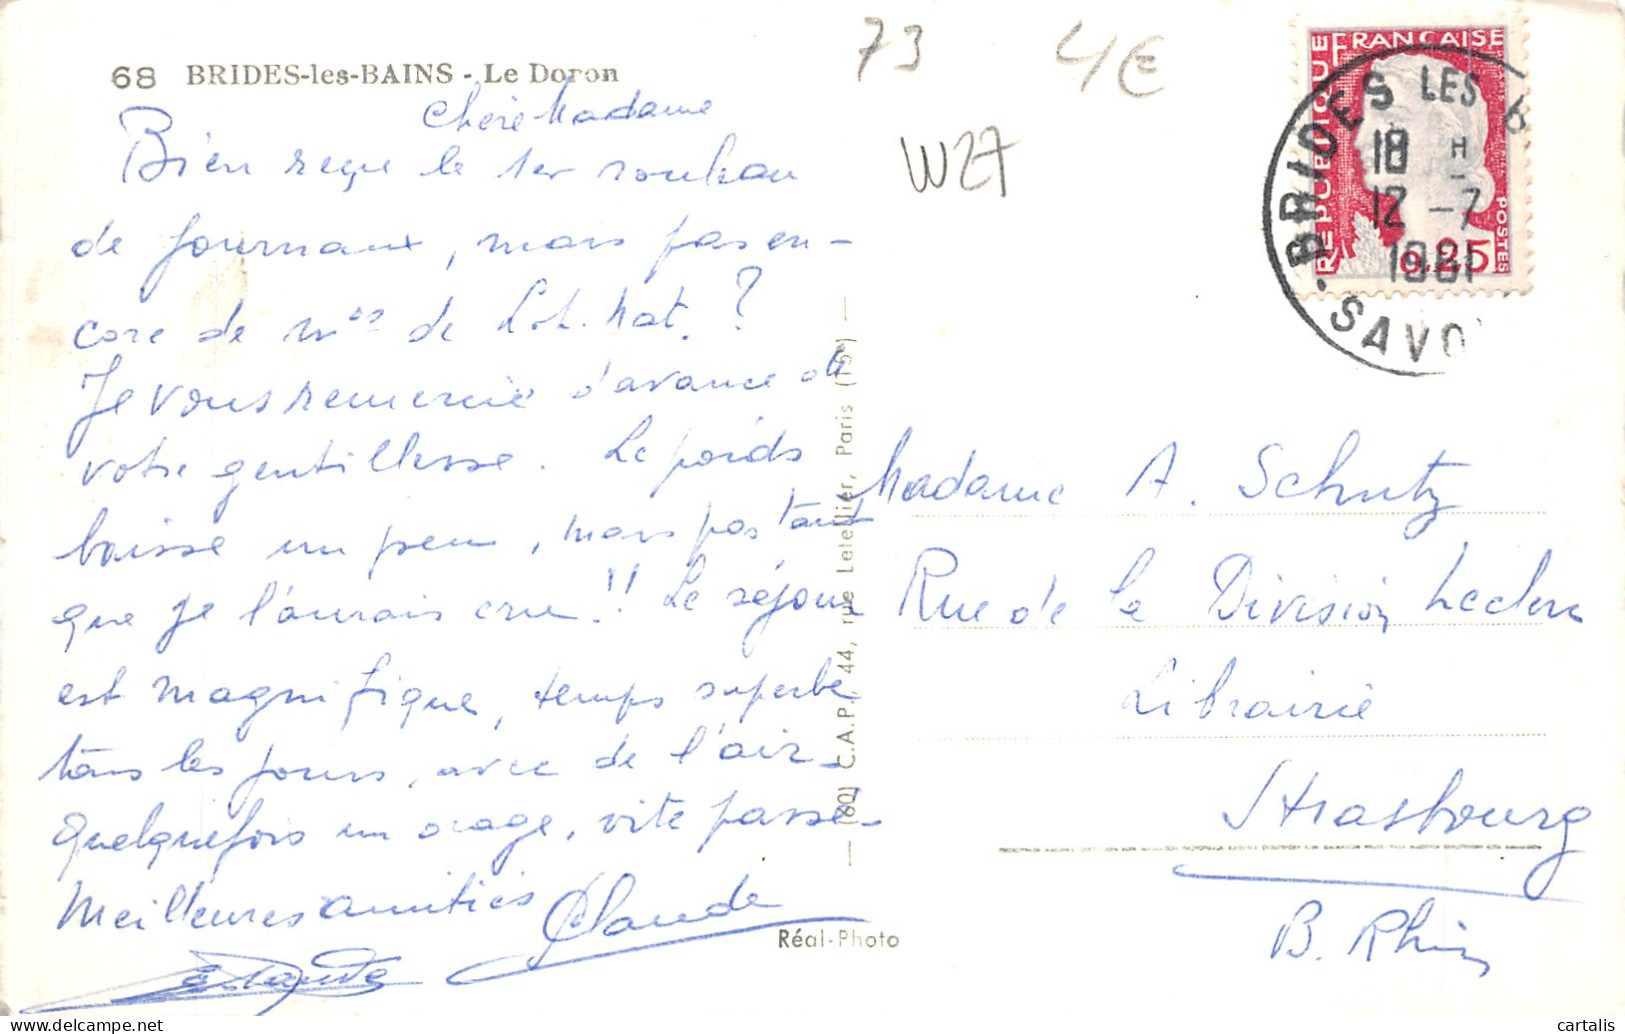 68 BRIDES-les-BAINS - Le Doron
73
4€
W27
Chère Madame
Bien reçu le 1er rouleau
de journaux, mais pas en-
core de nos de Lol. Mat.?
Je vous remercie d'avance de
votre gentillesse. Le poids
baisse un peu, mais pas tant
que je l'aurais cru!! Le séjour
est magnifique, temps superbe
tous les jours, avec de l'air -
quelquefois un orage, vite passé -
Meilleures amitiés Claude
Claude
Réal-Photo
(60) C.A.P. 44, rue Letellier, Paris (15e)
RÉPUBLIQUE FRANÇAISE
POSTES
0,25
BRIDES LES B
18 H
12 -7
1961
SAVO
Madame A. Schutz
Rue de la Division Leclerc
Librairie
Strasbourg
B. Rhin
cartalis
www.delcampe.net